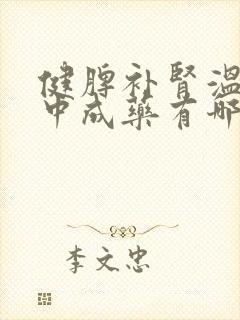 健脾补肾温
中成药有哪
李文忠